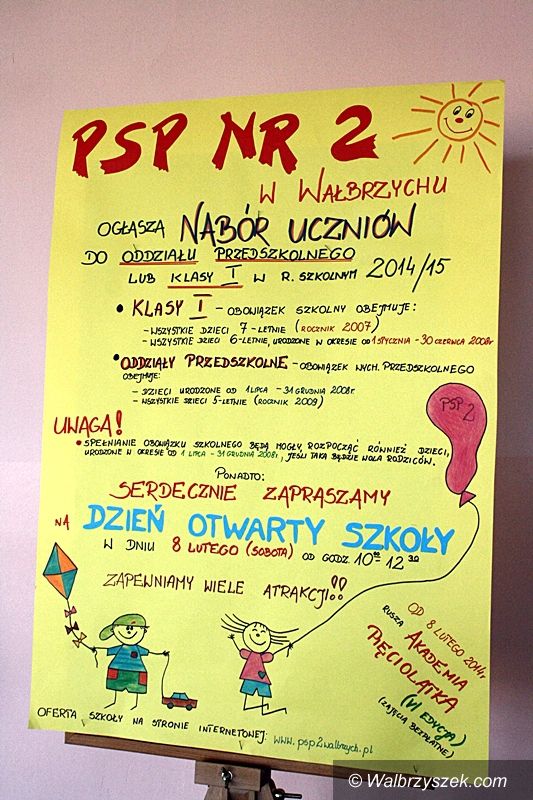 PSP NR 2
W WAŁBRZYCHU
OGŁASZA NABÓR UCZNIÓW
DO ODDZIAŁU PRZEDSZKOLNEGO
LUB KLASY I W R. SZKOLNYM 2014/15
• KLASY I - OBOWIĄZEK SZKOLNY OBEJMUJE:
- WSZYSTKIE DZIECI 7-LETNIE (ROCZNIK 2007)
- WSZYSTKIE DZIECI 6-LETNIE, URODZONE W OKRESIE OD 1 STYCZNIA - 30 CZERWCA 2008r
• ODDZIAŁY PRZEDSZKOLNE - OBOWIĄZEK WYCH. PRZEDSZKOLNEGO
OBEJMUJE:
- DZIECI URODZONE OD 1 LIPCA - 31 GRUDNIA 2008r.
- WSZYSTKIE DZIECI 5-LETNIE (ROCZNIK 2009)
PSP 2
UWAGA!
• SPEŁNIANIE OBOWIĄZKU SZKOLNEGO BĘDĄ MOGŁY ROZPOCZĄĆ RÓWNIEŻ DZIECI,
URODZONE W OKRESIE OD 1 LIPCA - 31 GRUDNIA 2008r., JEŚLI TAKA BĘDZIE WOLA RODZICÓW.
PONADTO:
SERDECZNIE ZAPRASZAMY
NA DZIEŃ OTWARTY SZKOŁY
W DNIU 8 LUTEGO (SOBOTA) OD GODZ. 10⁰⁰-12³⁰
ZAPEWNIAMY WIELE ATRAKCJI!!
OD 8 LUTEGO 2014r
RUSZA AKADEMIA
PIĘCIOLATKA
(VI EDYCJA)
(ZAJĘCIA BEZPŁATNE)
OFERTA SZKOŁY NA STRONIE INTERNETOWEJ: www.psp2walbrzych.pl
© Walbrzyszek.com